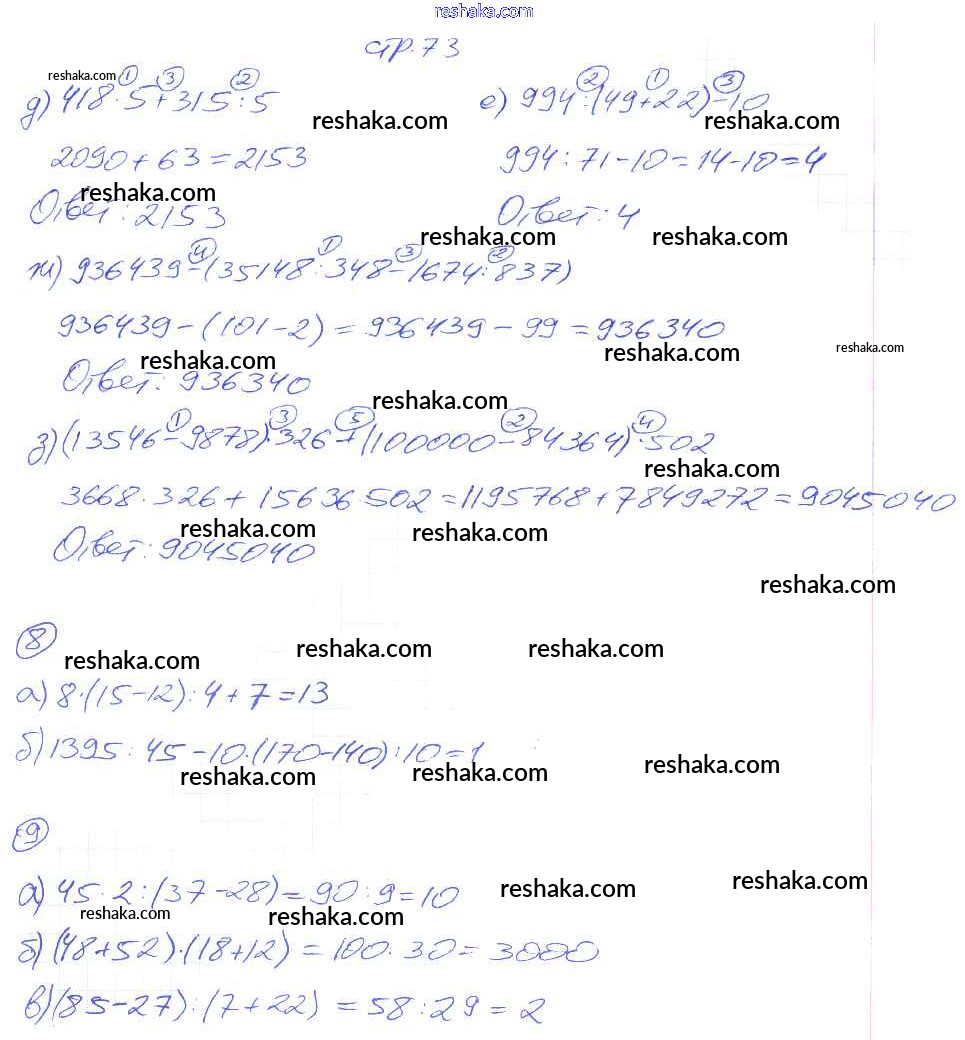 reshaka.com
стр. 73
reshaka.com
① ③ ②
д) 418·5+315:5
② ① ③
е) 994:(49+22)-10
reshaka.com reshaka.com
2090+63=2153
994:71-10=14-10=4
reshaka.com
Ответ: 2153
Ответ: 4
reshaka.com reshaka.com
④ ① ③ ②
ж) 936439-(35148:348-1674:837)
936439-(101-2)=936439-99=936340
reshaka.com reshaka.com reshaka.com
Ответ: 936340
reshaka.com
① ③ ⑤ ② ④
з) (13546-9878)·326+(100000-84364)·502
reshaka.com
3668·326+15636·502=1195768+7849272=9045040
reshaka.com reshaka.com
Ответ: 9045040
reshaka.com
⑧
reshaka.com reshaka.com reshaka.com
а) 8·(15-12):4+7=13
б) 1395:45-10·(170-140):10=1
reshaka.com reshaka.com reshaka.com
⑨
а) 45·2:(37-28)=90:9=10
reshaka.com reshaka.com
reshaka.com reshaka.com
б) (48+52)·(18+12)=100·30=3000
в) (85-27):(7+22)=58:29=2